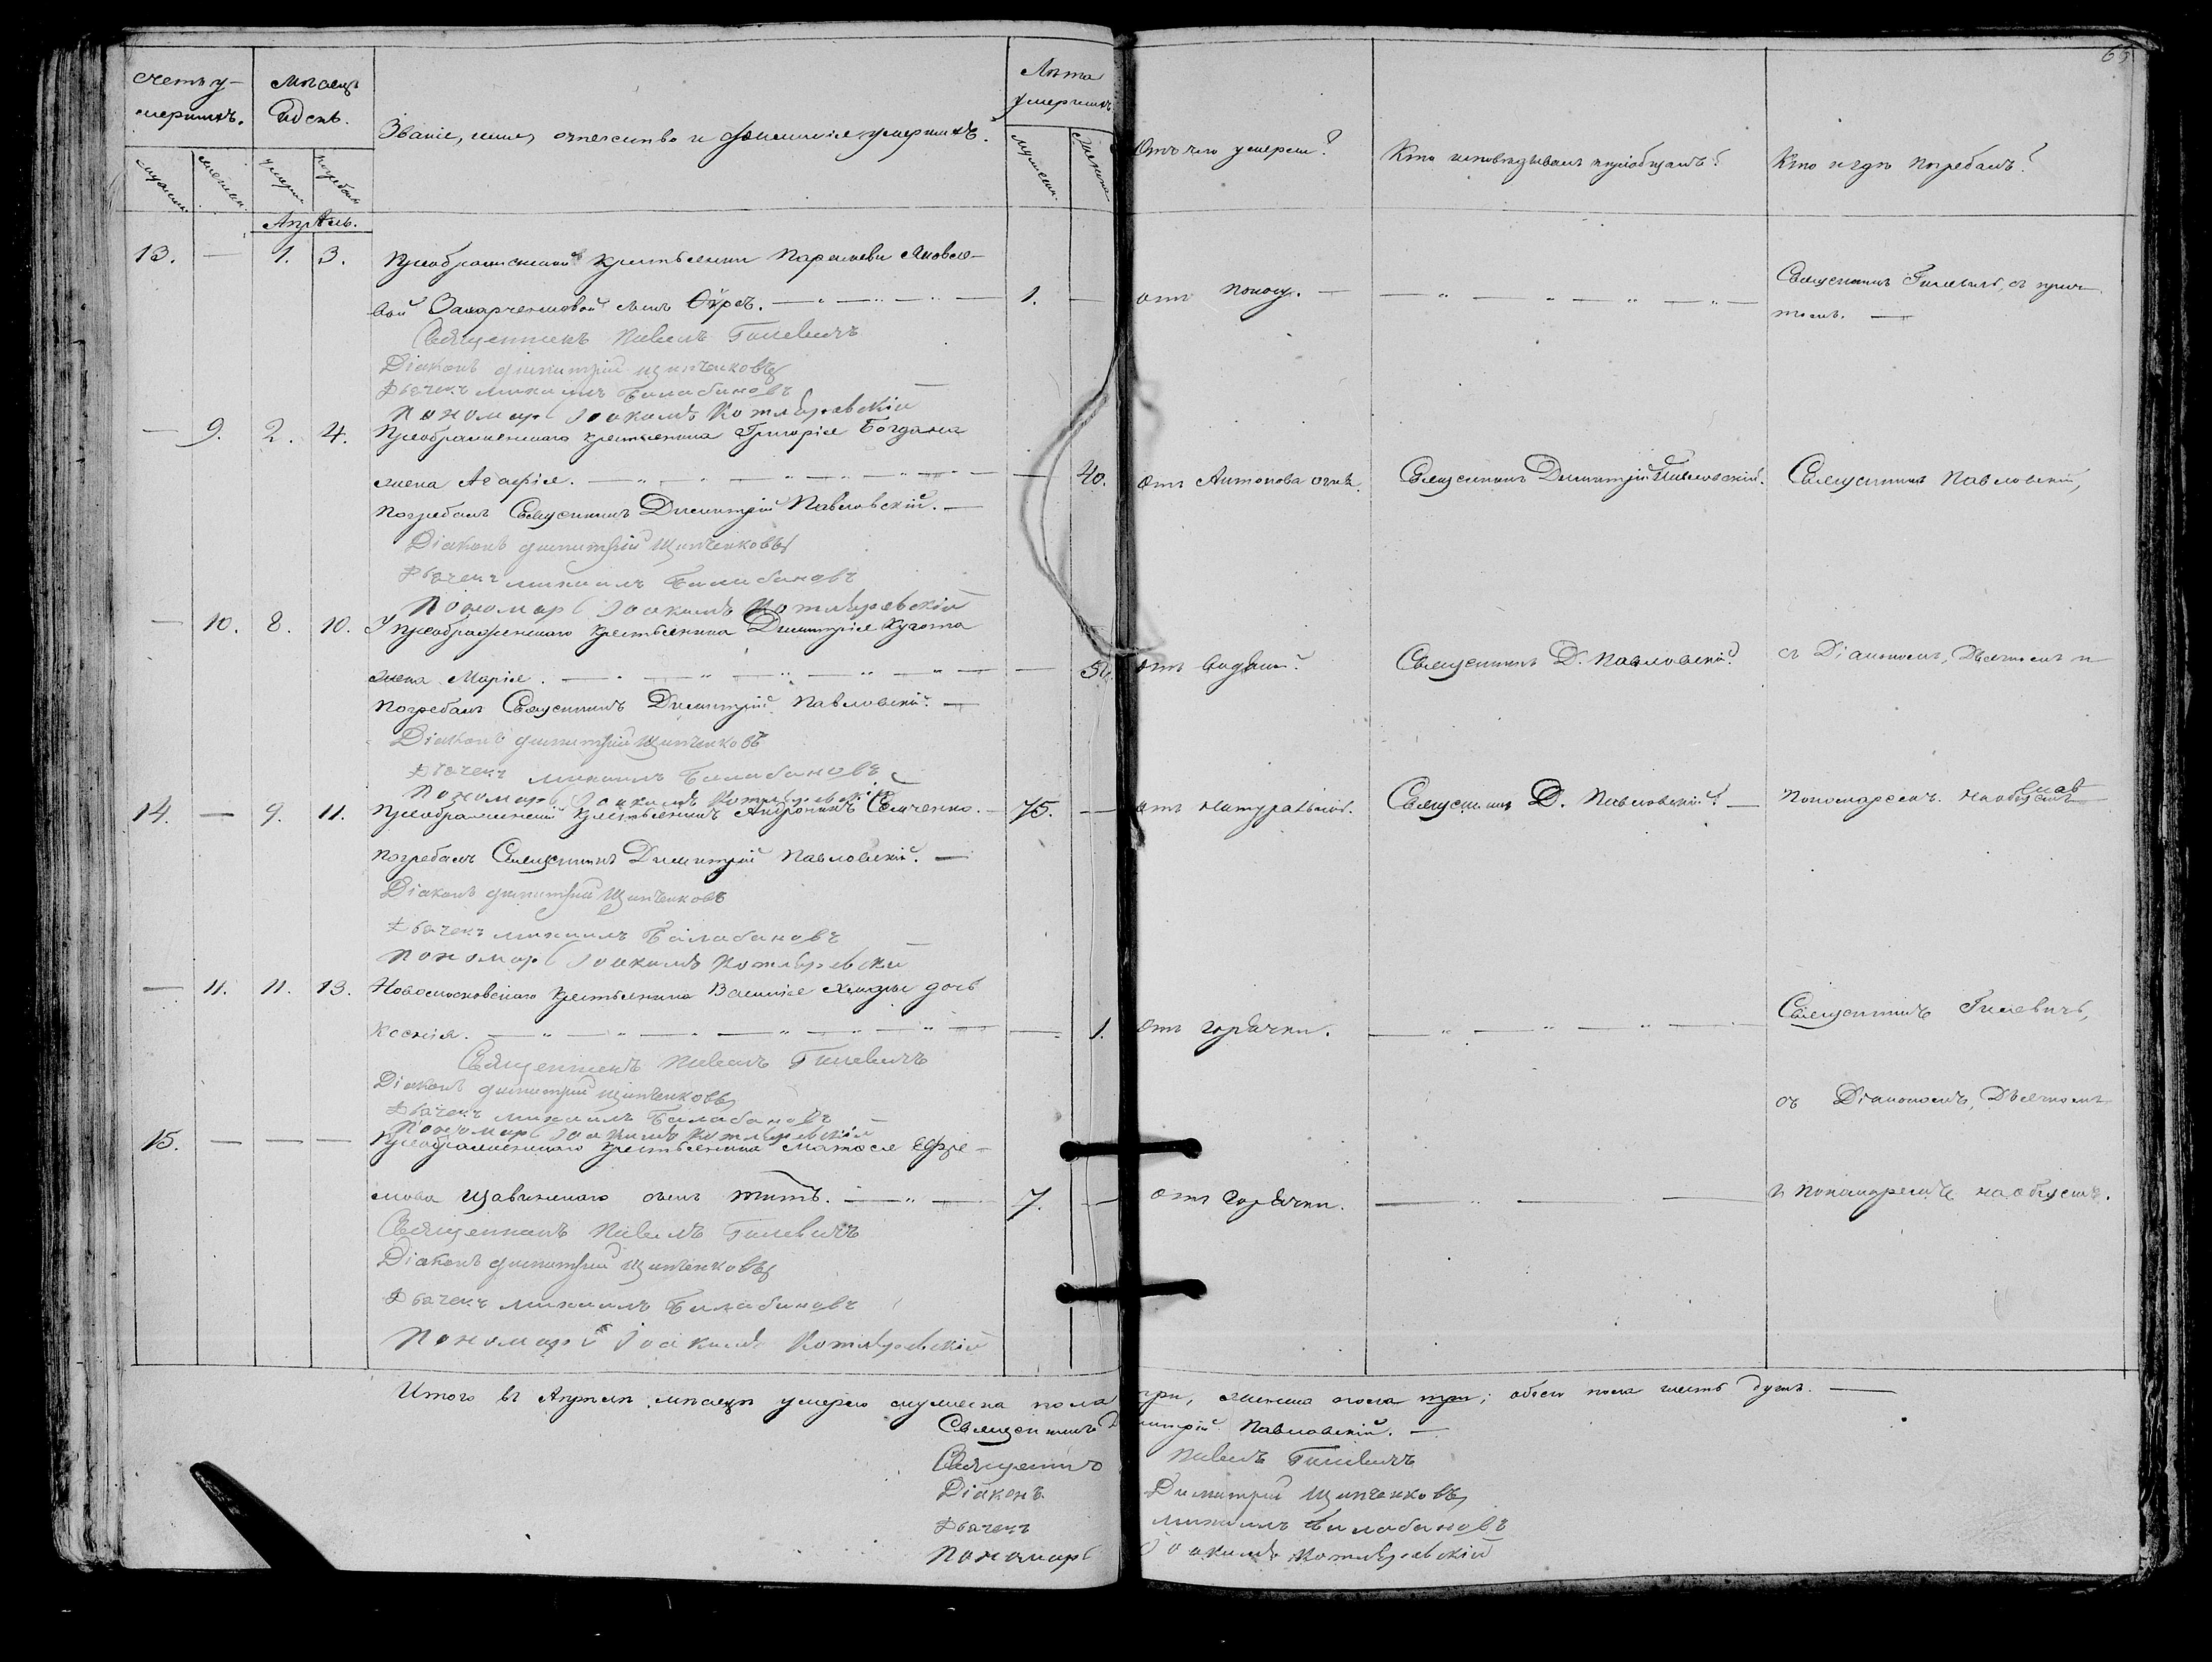 65
Счетъ у-
мершихъ.
Мѣсяцъ
и день.
Званіе, имя, отечество и фамилія умершихъ.
Лѣта
умершихъ
Отъ чего умерли?
Кто исповѣдывалъ и пріобщалъ?
Кто и гдѣ погребалъ?
мужеска
женска
умерли
погребены
мужеска
женска
Апрѣль.
13. — 1. 3. Преображенской крестьянки Параскеви Яковле-
вой Захарченковой сынъ Ѳиръ. — 1. — отъ поносу. — Священникъ Гилевичъ, съ прич-
томъ. —
Священникъ Павелъ Гилевичъ
Діаконъ Димитрій Щипченковъ
Дьячекъ Михаилъ Балабановъ
Пономарь Іоакимъ Котляревскій
— 9. 2. 4. Преображенскаго крестьянина Григорія Богдана
жена Агафія. — 40. отъ Антонова огня. Священникъ Димитрій Павловскій. Священникъ Павловскій,
погребалъ Священникъ Димитрій Павловскій. —
Діаконъ Димитрій Щипченковъ
Дьячекъ Михаилъ Балабановъ
Пономарь Іоакимъ Котляревскій
— 10. 8. 10. Преображенскаго крестьянина Димитрія
жена Марія. — отъ водяной. Священникъ Д. Павловскій. съ Діакономъ, Дьячкомъ и
погребалъ Священникъ Димитрій Павловскій. —
Діаконъ Димитрій Щипченковъ
Дьячекъ Михаилъ Балабановъ
Пономарь Іоакимъ Котляревскій
14. — 9. 11. Преображенскій крестьянинъ Андроникъ Семченко. — 75. — отъ натуральной. Священникъ Д. Павловскій. — Пономаремъ. на
погребалъ Священникъ Димитрій Павловскій. —
Діаконъ Димитрій Щипченковъ
Дьячекъ Михаилъ Балабановъ
Пономарь Іоакимъ Котляревскій
— 11. 11. 13. Новомосковскаго крестьянина Василія дочь
Ксенія. — 1. отъ горячки. — Священникъ Гилевичъ,
Священникъ Павелъ Гилевичъ
Діаконъ Димитрій Щипченковъ
съ Діакономъ, Дьячкомъ
Дьячекъ Михаилъ Балабановъ
Пономарь Іоакимъ Котляревскій
15. — — — Преображенскаго крестьянина Матвея Ефре-
мова сынъ Титъ. — 7. — отъ горячки. — и Пономаремъ на общемъ.
Священникъ Павелъ Гилевичъ
Діаконъ Димитрій Щипченковъ
Дьячекъ Михаилъ Балабановъ
Пономарь Іоакимъ Котляревскій
Итого въ Апрѣлѣ мѣсяцѣ умерло мужеска пола три, женска пола три; обоего пола шесть душъ. —
Священникъ Димитрій Павловскій. —
Священникъ Павелъ Гилевичъ
Діаконъ Димитрій Щипченковъ
Дьячекъ Михаилъ Балабановъ
Пономарь Іоакимъ Котляревскій